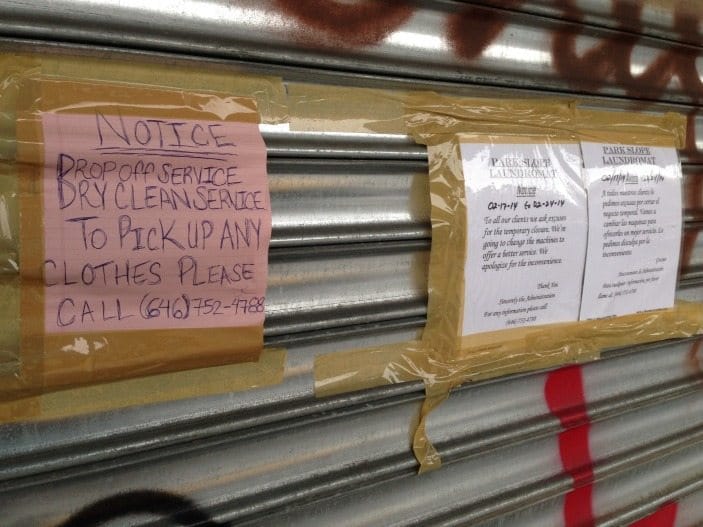 NOTICE
DROP OFF SERVICE
DRY CLEAN SERVICE
TO PICK UP ANY
CLOTHES PLEASE
CALL (646) 752-4788
PARK SLOPE
LAUNDROMAT
Notice
02-17-14 to 02-24-14
To all our clients we ask excuses
for the temporary closure. We're
going to change the machines to
offer a better service. We
apologize for the inconvenience.
Thank You
Sincerely the Administration
For any information please call:
(646) 752-4788
PARK SLOPE
LAUNDROMAT
A todos nuestros clientes le
pedimos excusas por cerrar el
negocio temporal. Vamos a
cambiar las maquinas para
ofrecerles un mejor servicio. Le
pedimos disculpa por la
inconveniencia.
Gracias
Sinceramente la Administración
Para cualquier información por favor
llame al: (646) 752-4788